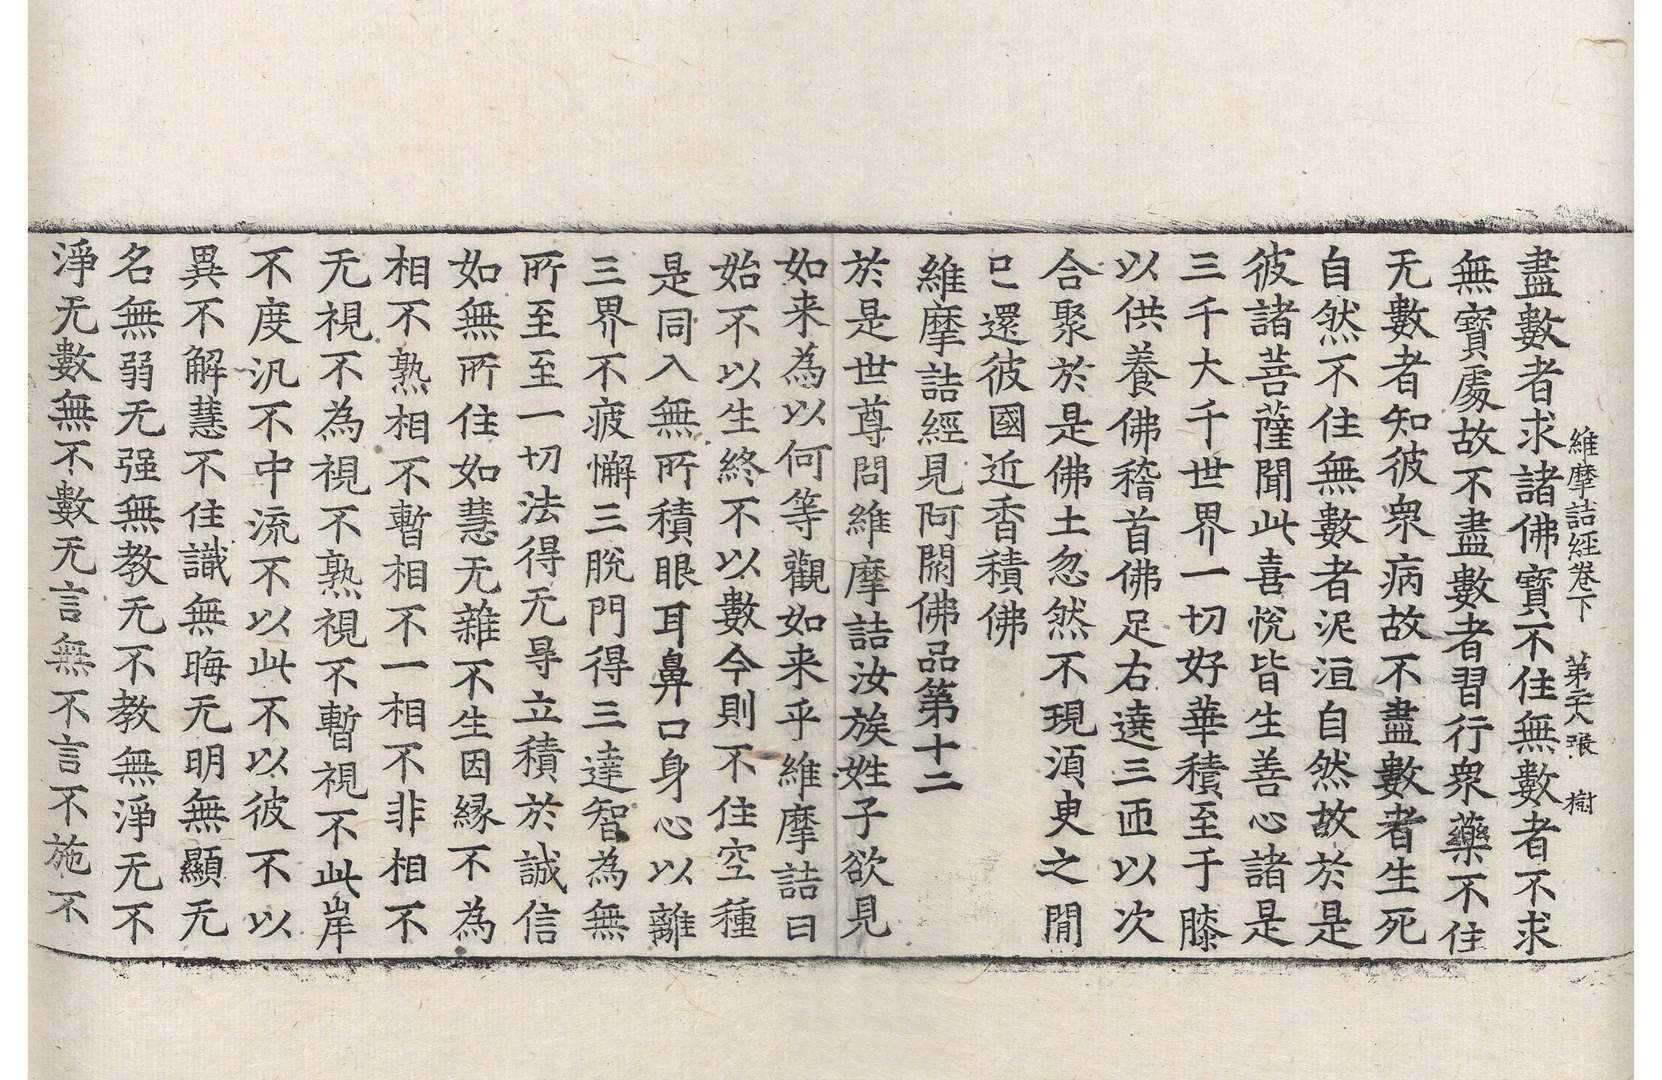 維摩詰經卷下 第二十八張 樹
盡數者求諸佛寶不住無數者不求
無寶處故不盡數者習行衆藥不住
无數者知彼衆病故不盡數者生死
自然不住無數者泥洹自然故於是
彼諸菩薩聞此喜悅皆生善心諸是
三千大千世界一切好華積至于膝
以供養佛稽首佛足右遶三匝以次
合聚於是佛土忽然不現湏臾之閒
已還彼國近香積佛
維摩詰經見阿閦佛品第十二
於是世尊問維摩詰汝族姓子欲見
如来為以何等觀如来乎維摩詰曰
始不以生終不以數今則不住空種
是同入無所積眼耳鼻口身心以離
三界不疲懈三脫門得三達智為無
所至至一切法得无㝵立積於誠信
如無所住如慧无雜不生因縁不為
相不熟相不暫相不一相不非相不
无視不為視不熟視不暫視不此岸
不度汎不中流不以此不以彼不以
異不解慧不住識無晦无明無顯无
名無弱无强無教无不教無淨无不
淨无數無不數无言無不言不施不